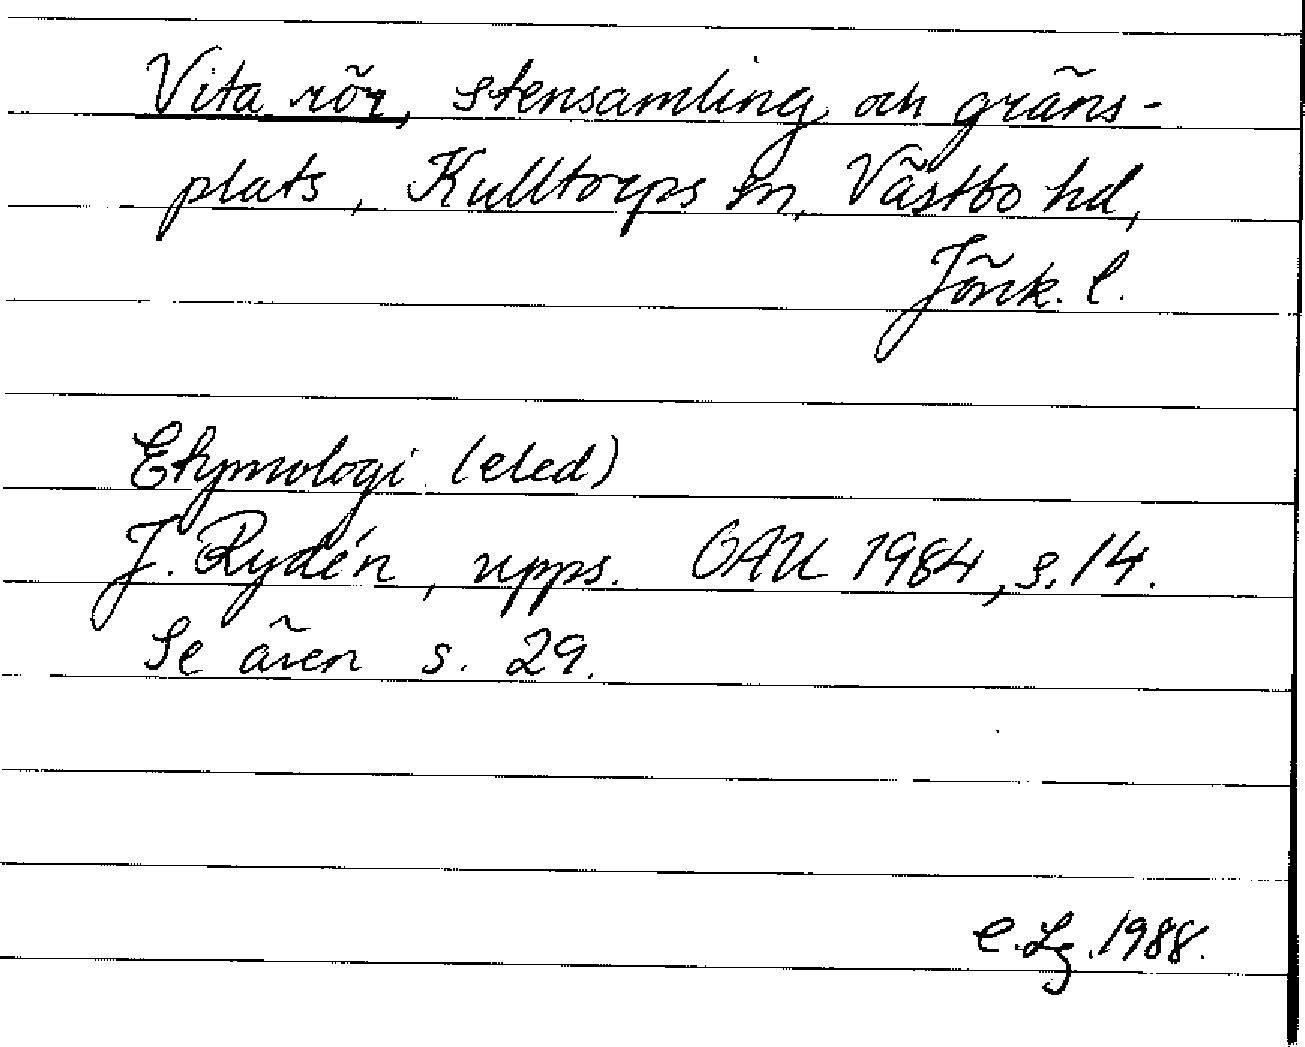 Vita rör, stensamling och gräns-
plats, Kulltorps sn, Västbo hd,
Jönk. l.
Etymologi (eled)
J. Rydén, upps. OAU 1984, s. 14.
Se även s. 29.
C. Lg. 1988.